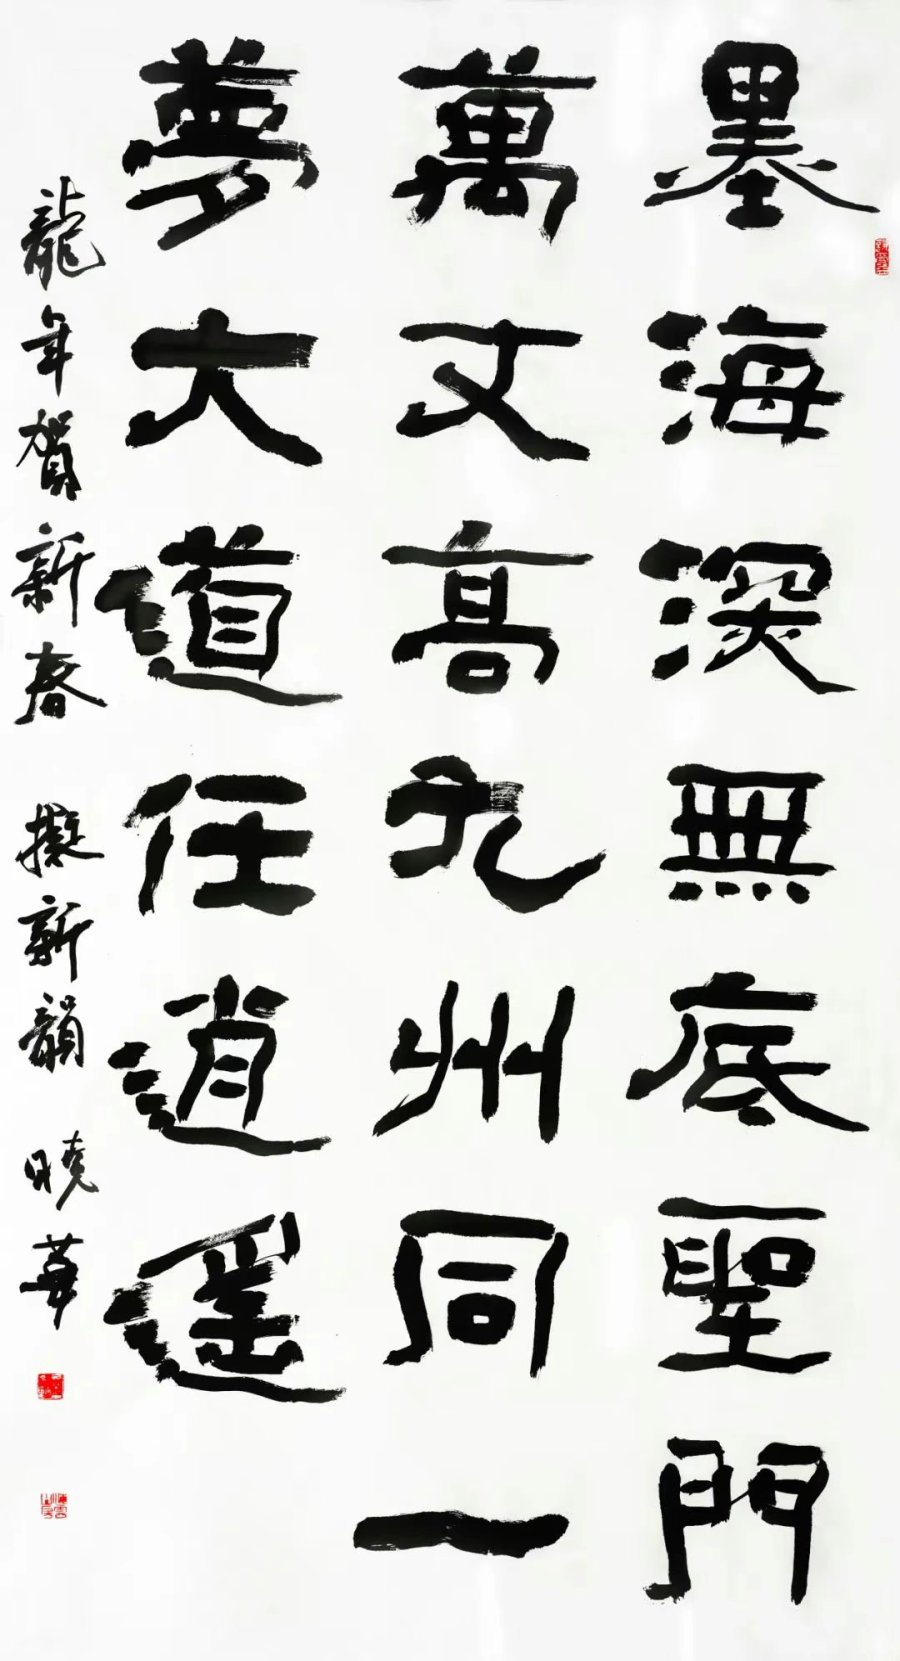 墨海深無底聖門
萬丈高九州同一
夢大道任逍遙
龍年賀新春 擬新韻 曉華